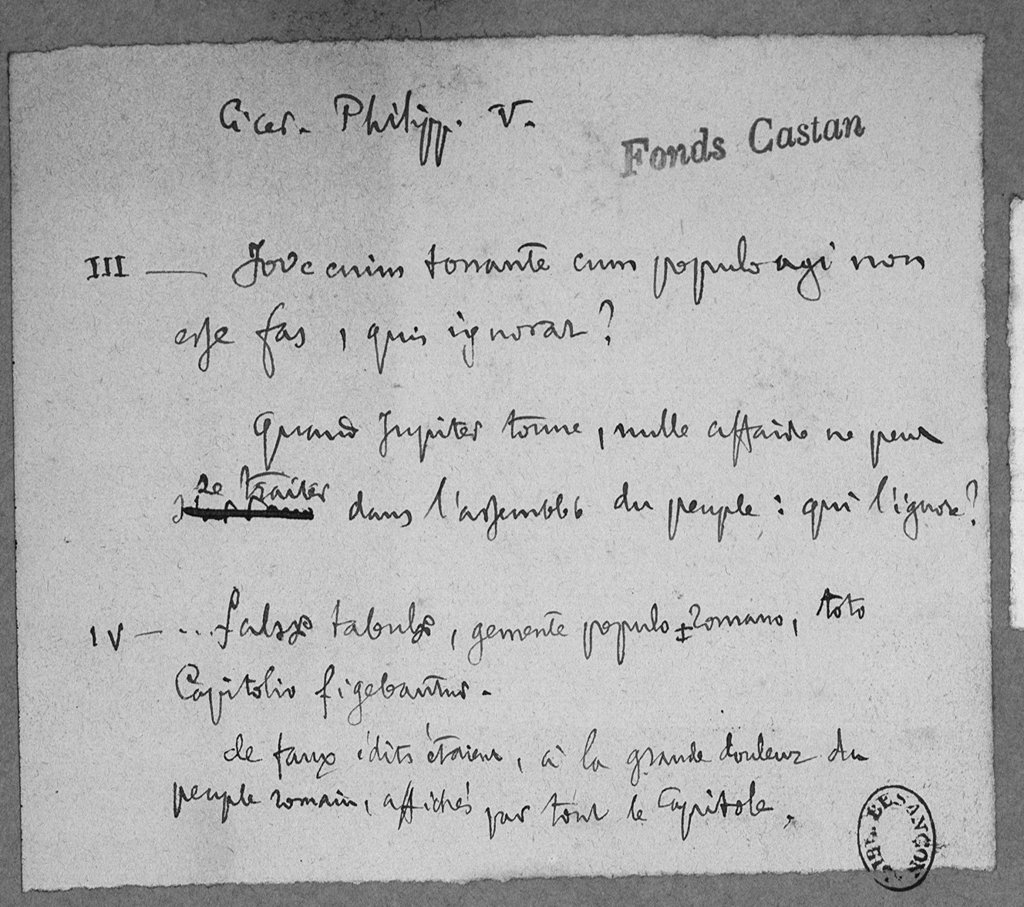 Cicer. Philipp. V.
Fonds Castan
III — Jove enim tonante cum populo agi non
esse fas, quis ignorat?
Quand Jupiter tonne, nulle affaire ne peut
se traiter
dans l'assemblée du peuple : qui l'ignore?
IV — ... falsæ tabulæ, gemente populo romano, toto
Capitolio figebantur.
de faux édits étaient, à la grande douleur du
peuple romain, affichés par tout le Capitole.
BIBL. BESANÇON